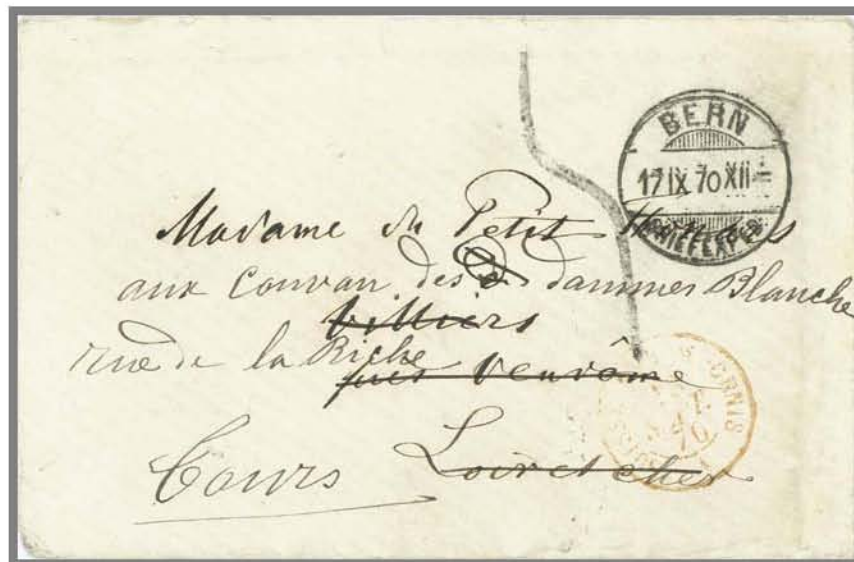 BERN
17 IX 70 XII –
BRIEFEXPED
Madame du Petit
aux Couvan des dammes Blanche
Villiers
rue de la Riche
près Vendôme
Tours Loir et cher